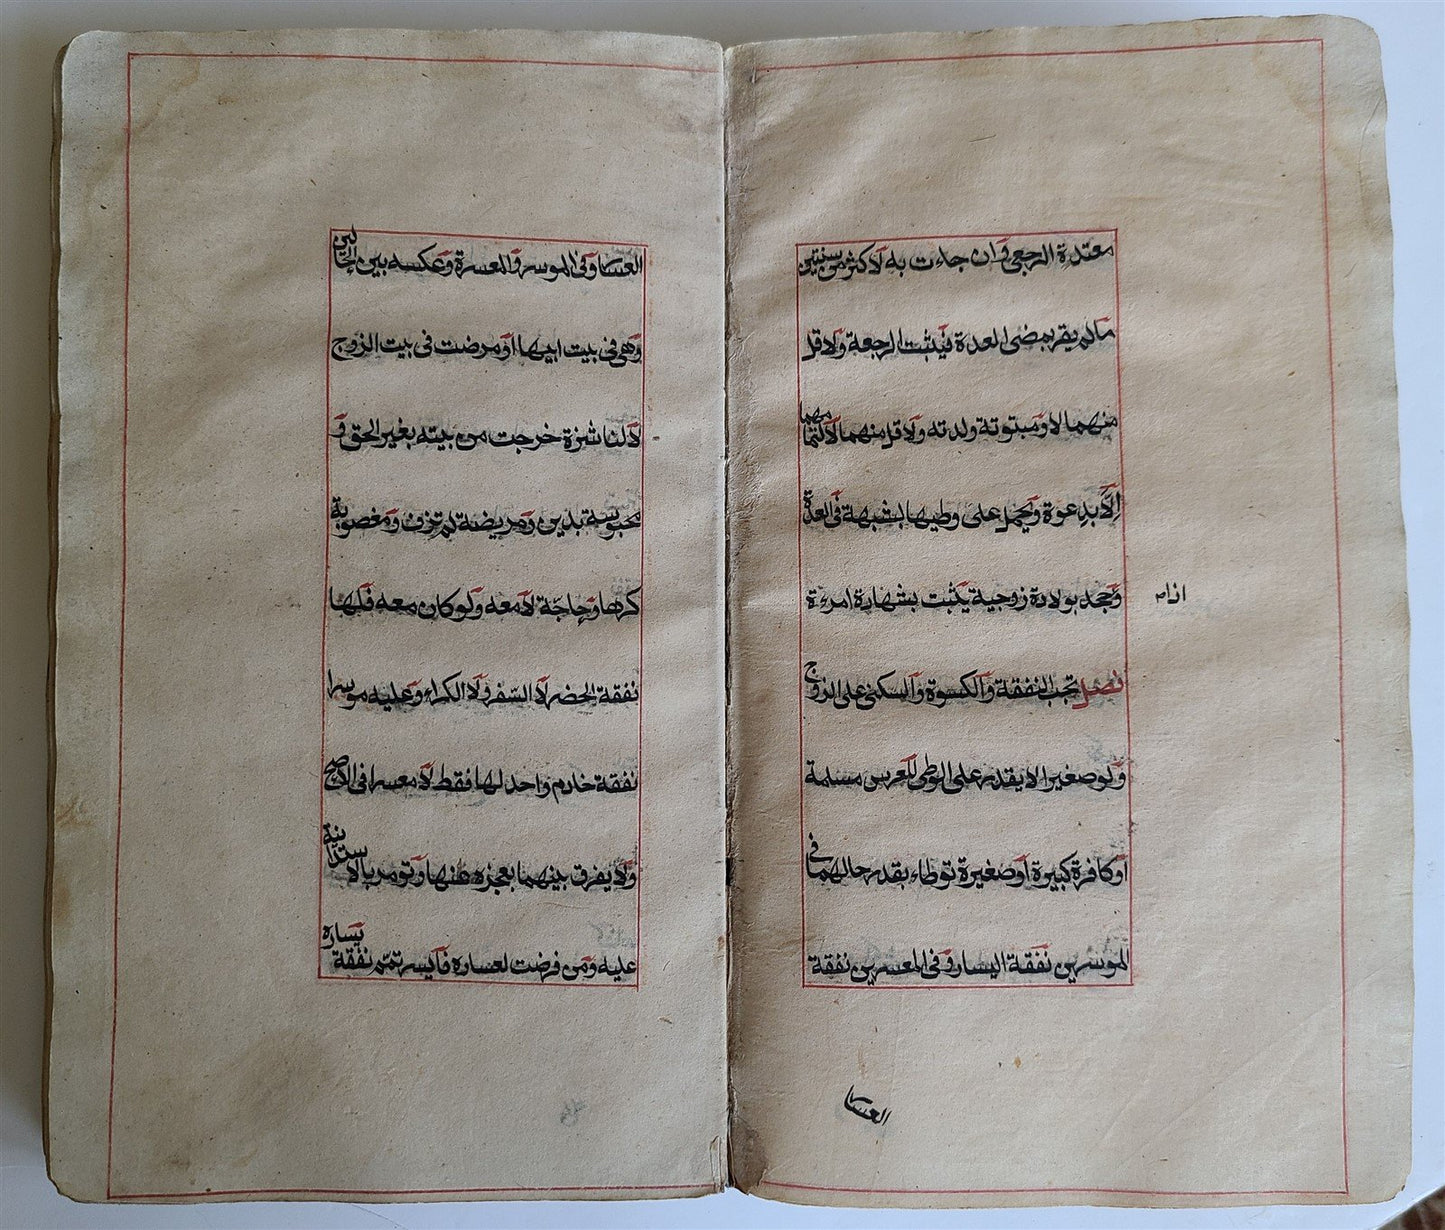 معتدة الرجعى وان جاءت به لاكثر من سنتين
مالم يقر بمضى العدة فيثبت الرجعة ولاقل
منهما لا ومبتوتة ولدته ولاقل منهما لا لتمامهما
الا بدعوة ويحمل على وطيها بشبهة فى العدة
وجحد بولادة زوجية يثبت بشهادة امرءة
فصل تجب النفقة والكسوة والسكنى على الزوج
ولو صغيرا لا يقدر على الوطى للعرس مسلمة
او كافرة كبيرة او صغيرة توطاء بقدر حالهما فى
الموسرين نفقة اليسار وفى المعسرين نفقة
العسار
العسار وفى الموسر والمعسرة وعكسه بين الحالين
وهى فى بيت ابيها او مرضت فى بيت الزوج
لا لناشزة خرجت من بيته بغير الحق و
محبوسة بدين ومريضة لم تزف ومغصوبة
كرها وحاجّة لا معه ولو كان معه فلها
نفقة الحضر لا السّفر ولا الكراء وعليه موسرا
نفقة خادم واحد لها فقط لا معسرا فى الاصح
ولا يفرق بينهما بعجزه عنها وتومر بالاستدانة
عليه ومن فرضت لعساره فايسر تمّم نفقة يساره